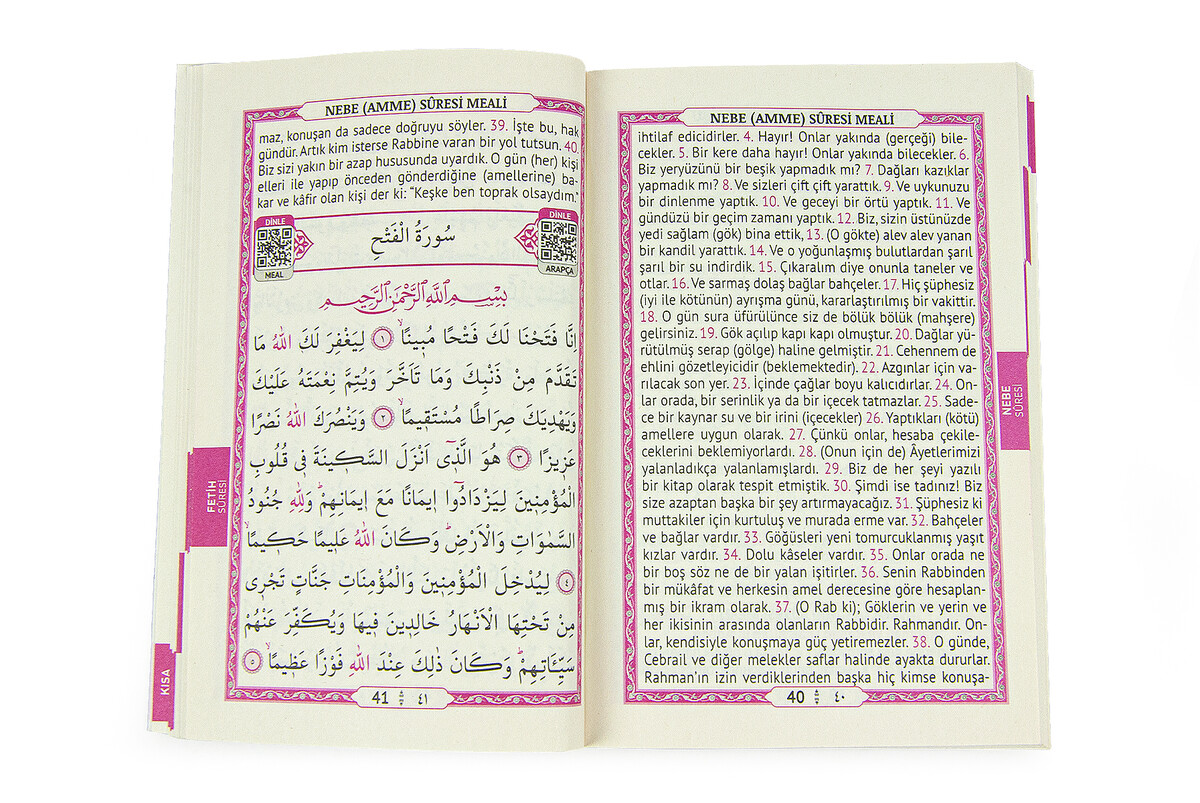 NEBE (AMME) SÛRESİ MEALİ
ihtilaf edicidirler. 4. Hayır! Onlar yakında (gerçeği) bile-
cekler. 5. Bir kere daha hayır! Onlar yakında bilecekler. 6.
Biz yeryüzünü bir beşik yapmadık mı? 7. Dağları kazıklar
yapmadık mı? 8. Ve sizleri çift çift yarattık. 9. Ve uykunuzu
bir dinlenme yaptık. 10. Ve geceyi bir örtü yaptık. 11. Ve
gündüzü bir geçim zamanı yaptık. 12. Biz, sizin üstünüzde
yedi sağlam (gök) bina ettik, 13. (O gökte) alev alev yanan
bir kandil yarattık. 14. Ve o yoğunlaşmış bulutlardan şarıl
şarıl bir su indirdik. 15. Çıkaralım diye onunla taneler ve
otlar. 16. Ve sarmaş dolaş bağlar bahçeler. 17. Hiç şüphesiz
(iyi ile kötünün) ayrışma günü, kararlaştırılmış bir vakittir.
18. O gün sura üfürülünce siz de bölük bölük (mahşere)
gelirsiniz. 19. Gök açılıp kapı kapı olmuştur. 20. Dağlar yü-
rütülmüş serap (gölge) haline gelmiştir. 21. Cehennem de
ehlini gözetleyicidir (beklemektedir). 22. Azgınlar için va-
rılacak son yer. 23. İçinde çağlar boyu kalıcıdırlar. 24. On-
lar orada, bir serinlik ya da bir içecek tatmazlar. 25. Sade-
ce bir kaynar su ve bir irini (içecekler) 26. Yaptıkları (kötü)
amellere uygun olarak. 27. Çünkü onlar, hesaba çekile-
ceklerini beklemiyorlardı. 28. (Onun için de) Âyetlerimizi
yalanladıkça yalanlamışlardı. 29. Biz de her şeyi yazılı
bir kitap olarak tespit etmiştik. 30. Şimdi ise tadınız! Biz
size azaptan başka bir şey artırmayacağız. 31. Şüphesiz ki
muttakiler için kurtuluş ve murada erme var. 32. Bahçeler
ve bağlar vardır. 33. Göğüsleri yeni tomurcuklanmış yaşıt
kızlar vardır. 34. Dolu kâseler vardır. 35. Onlar orada ne
bir boş söz ne de bir yalan işitirler. 36. Senin Rabbinden
bir mükâfat ve herkesin amel derecesine göre hesaplan-
mış bir ikram olarak. 37. (O Rab ki); Göklerin ve yerin ve
her ikisinin arasında olanların Rabbidir. Rahmandır. On-
lar, kendisiyle konuşmaya güç yetiremezler. 38. O günde,
Cebrail ve diğer melekler saflar halinde ayakta dururlar.
Rahman'ın izin verdiklerinden başka hiç kimse konuşa-
40 ٤٠
NEBE
SÛRESİ
NEBE (AMME) SÛRESİ MEALİ
maz, konuşan da sadece doğruyu söyler. 39. İşte bu, hak
gündür. Artık kim isterse Rabbine varan bir yol tutsun. 40.
Biz sizi yakın bir azap hususunda uyardık. O gün (her) kişi
elleri ile yapıp önceden gönderdiğine (amellerine) ba-
kar ve kâfir olan kişi der ki: “Keşke ben toprak olsaydım.”
DİNLE
MEAL
سُورَةُ الْفَتْحِ
DİNLE
ARAPÇA
بِسْمِ اللهِ الرَّحْمٰنِ الرَّحِيمِ
اِنَّا فَتَحْنَا لَكَ فَتْحًا مُبِينًاۙ ﴿١﴾ لِيَغْفِرَ لَكَ اللهُ مَا
تَقَدَّمَ مِنْ ذَنْبِكَ وَمَا تَاَخَّرَ وَيُتِمَّ نِعْمَتَهُ عَلَيْكَ
وَيَهْدِيَكَ صِرَاطًا مُسْتَقِيمًاۙ ﴿٢﴾ وَيَنْصُرَكَ اللهُ نَصْرًا
عَزِيزًا ﴿٣﴾ هُوَ الَّذِٓى اَنْزَلَ السَّكِينَةَ فِى قُلُوبِ
الْمُؤْمِنِينَ لِيَزْدَادُٓوا اِيمَانًا مَعَ اِيمَانِهِمْۜ وَلِلهِ جُنُودُ
السَّمٰوَاتِ وَالْاَرْضِۜ وَكَانَ اللهُ عَلِيمًا حَكِيمًاۙ
﴿٤﴾ لِيُدْخِلَ الْمُؤْمِنِينَ وَالْمُؤْمِنَاتِ جَنَّاتٍ تَجْرِى
مِنْ تَحْتِهَا الْاَنْهَارُ خَالِدِينَ فِيهَا وَيُكَفِّرَ عَنْهُمْ
سَيِّـَٔاتِهِمْۜ وَكَانَ ذٰلِكَ عِنْدَ اللهِ فَوْزًا عَظِيمًاۙ ﴿٥﴾
41 ٤١
FETİH
SÛRESİ
KISA